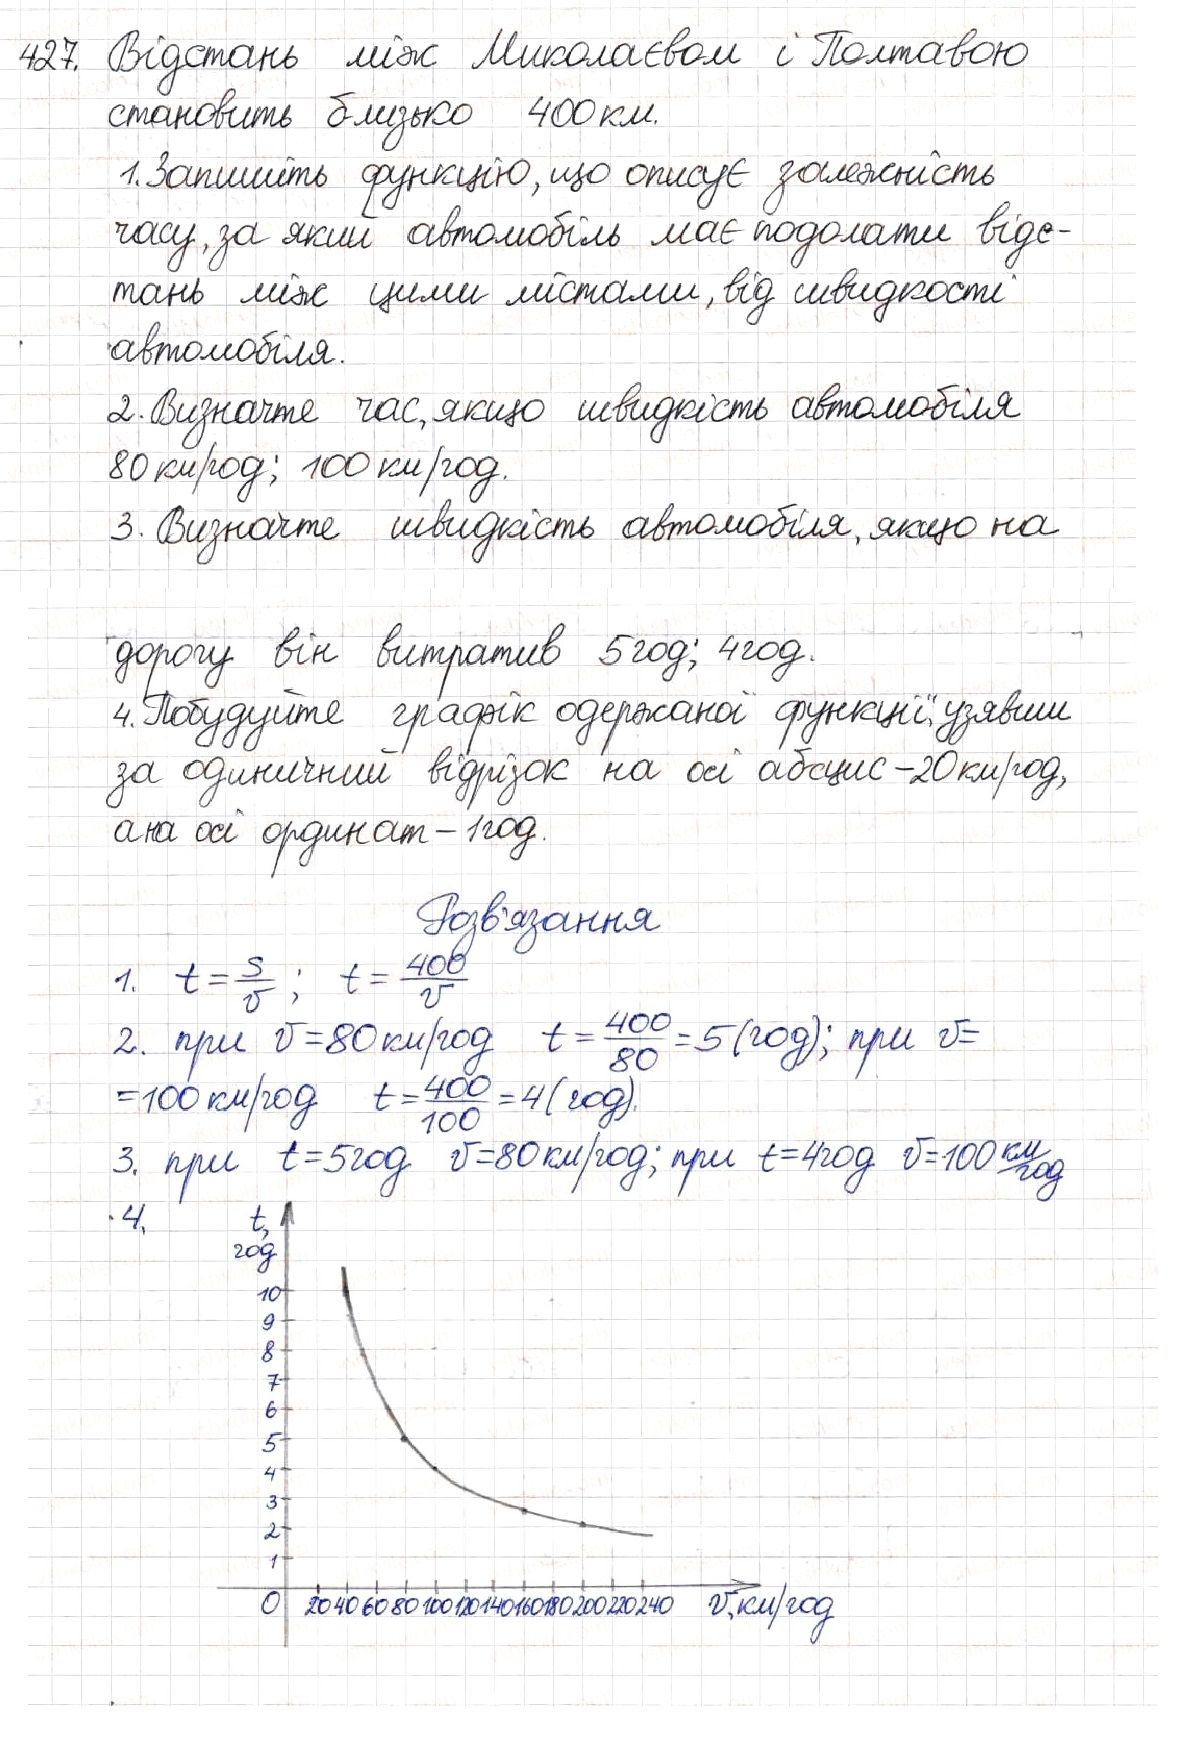 427. Відстань між Миколаєвом і Полтавою
становить близько 400 км.
1. Запишіть функцію, що описує залежність
часу, за який автомобіль має подолати відс-
тань між цими містами, від швидкості
автомобіля.
2. Визначте час, якщо швидкість автомобіля
80 км/год; 100 км/год.
3. Визначте швидкість автомобіля, якщо на
дорогу він витратив 5 год; 4 год.
4. Побудуйте графік одержаної функції, узявши
за одиничний відрізок на осі абсцис – 20 км/год,
а на осі ординат – 1 год.
Розв'язання
1. t = s/v ; t = 400/v
2. при v = 80 км/год t = 400/80 = 5 (год); при v =
= 100 км/год t = 400/100 = 4 (год).
3. при t = 5 год v = 80 км/год; при t = 4 год v = 100 км/год
4. t,
год
10
9
8
7
6
5
4
3
2
1
0 20 40 60 80 100 120 140 160 180 200 220 240 v, км/год